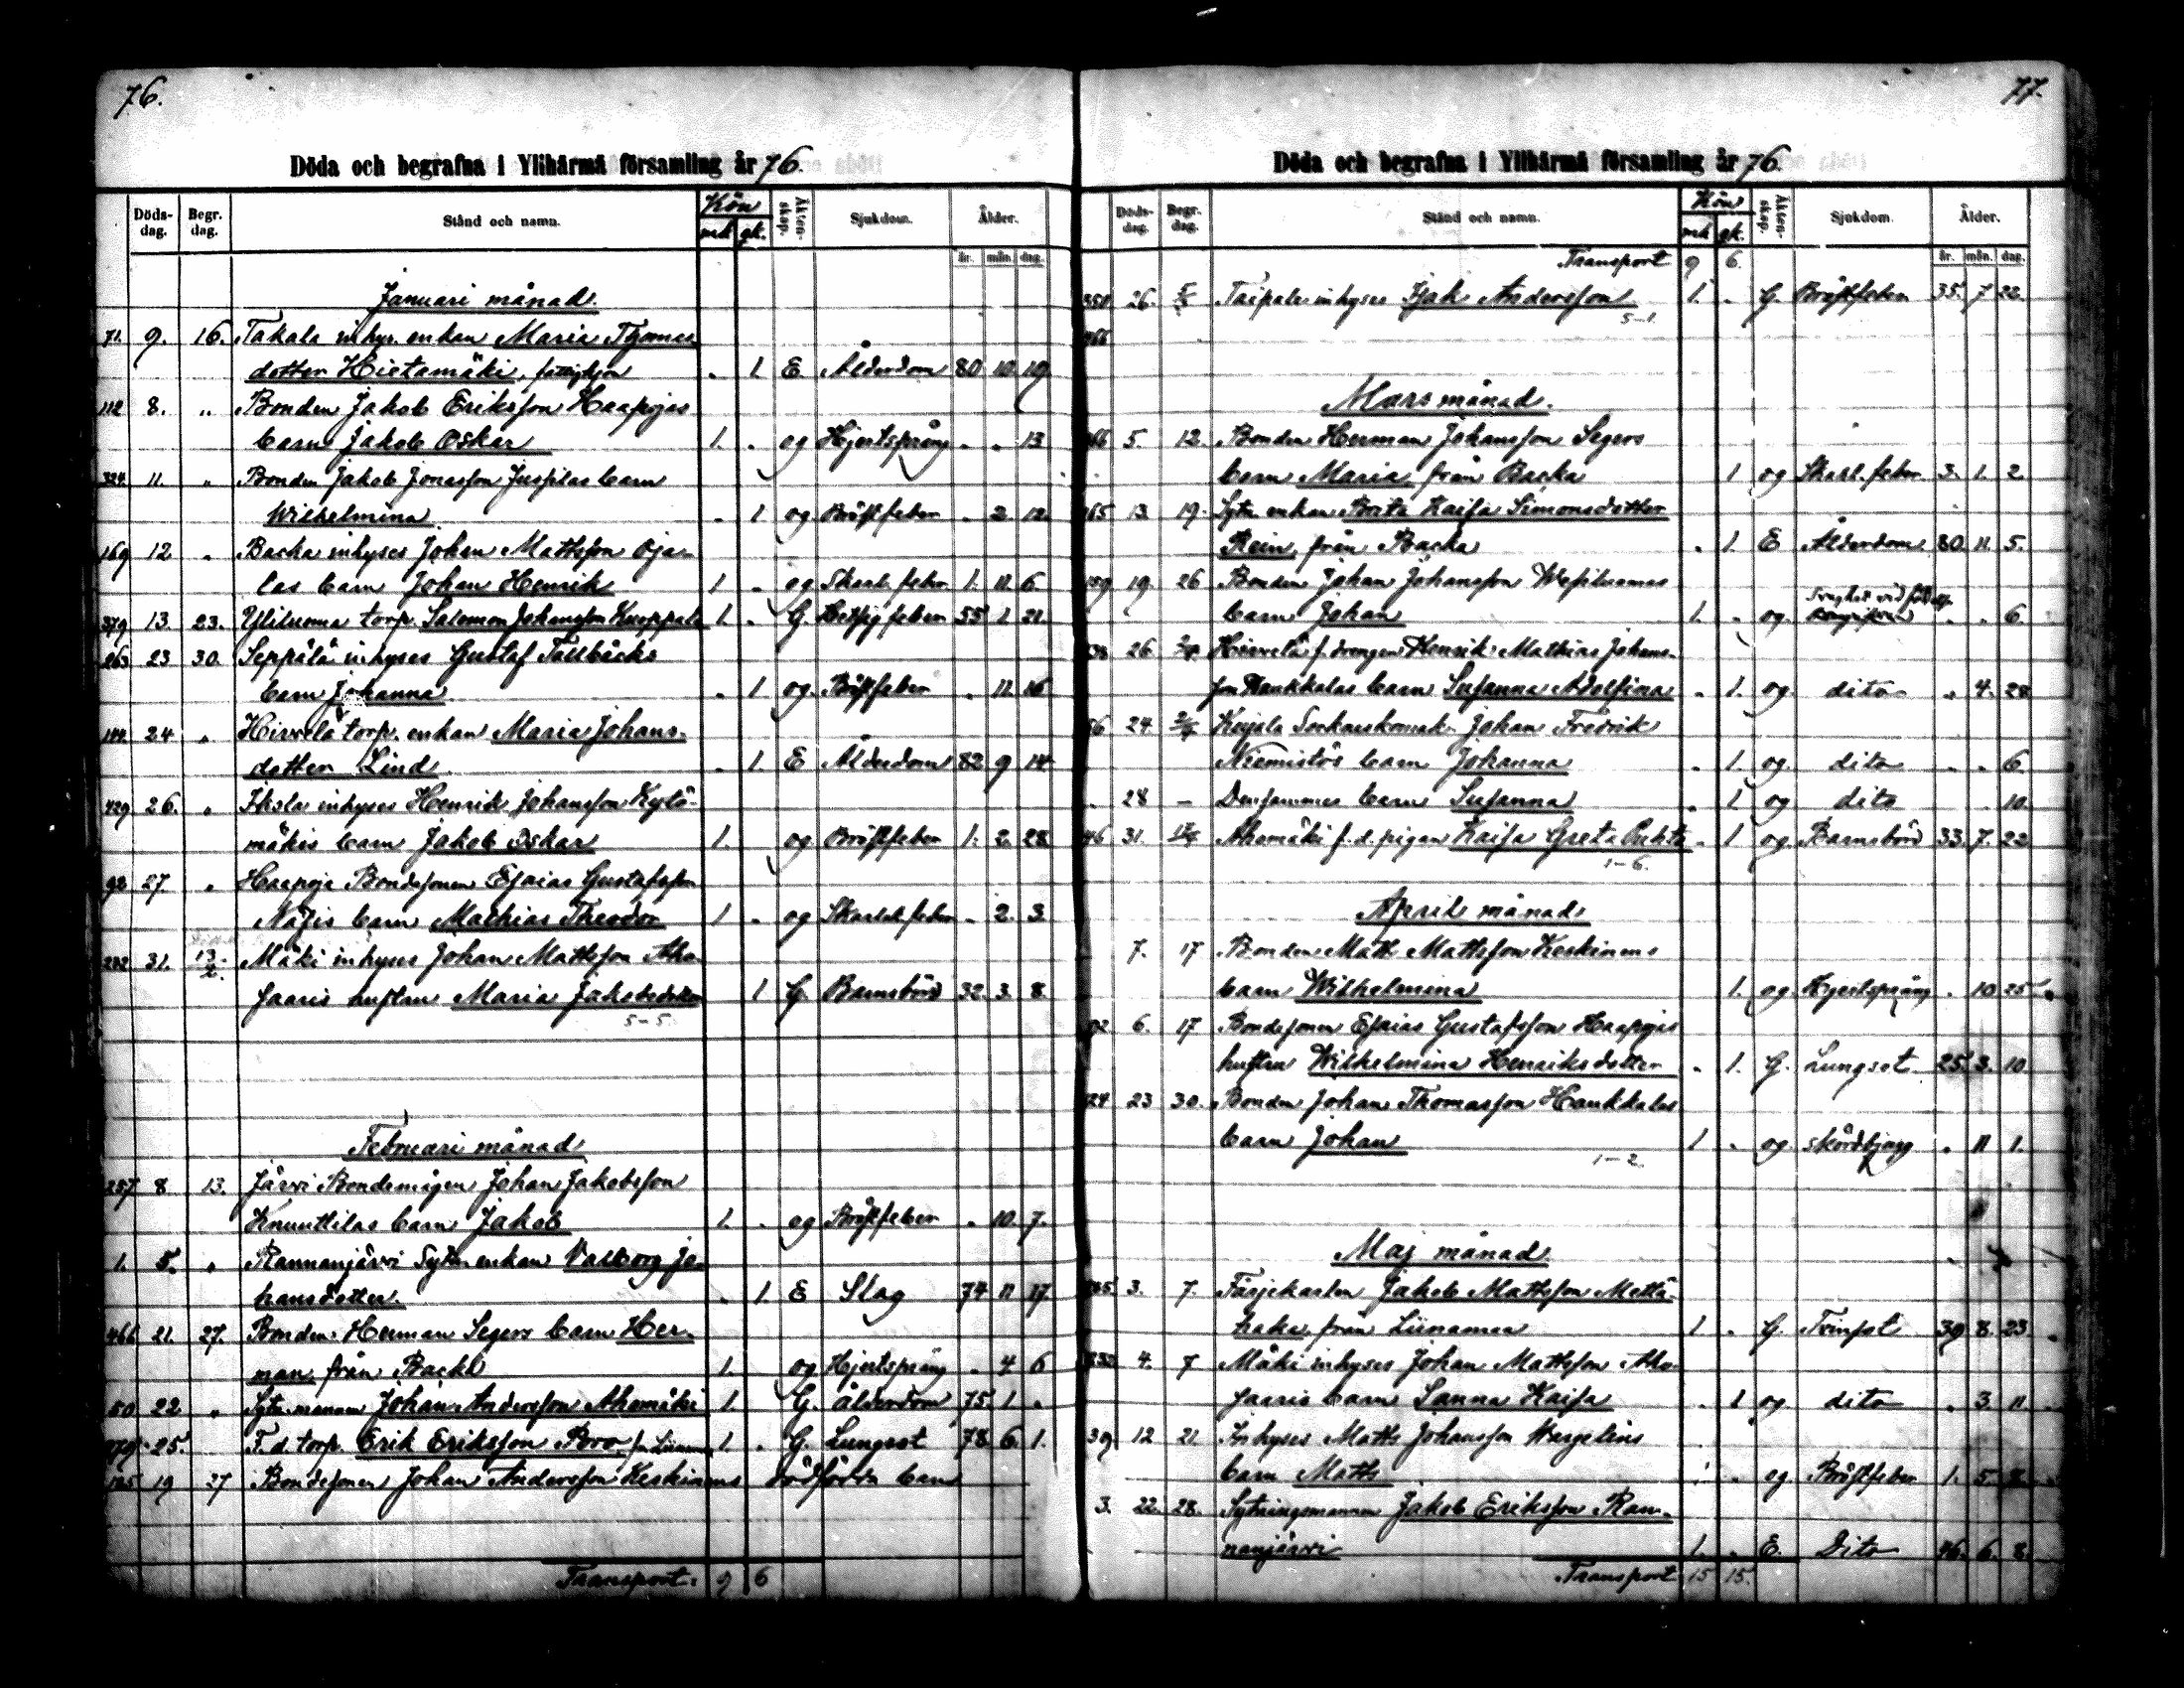 76.
Döda och begrafna i Ylihärmä församling år 76.
Döds-dag. Begr. dag. Stånd och namn. Kön mk qk. Äkten-skap. Sjukdom. Ålder.
år. mån. dag.
Januari månad.
71. 9. 16. Takala inhys. enkan Maria
dotter Hietamäki, fattighjon . 1. E. Ålderdom 80. 10. 19.
112 8. " Bonden Jakob Eriksson Haapojas
barn Jakob Oskar 1. . og Hjertsprång . . 13
324. 11. " Bonden Jakob Jonasson Jussilas barn
Wilhelmina . 1 og Bröstfeber . 2. 12.
169 12 " Backa inhyses Johan Mattsson Oja-
las barn Johan Henrik 1 . og Skarl. feber 1. 11. 6.
379 13. 23. Yliluoma torp. Salomon Johansson 1. . G. feber 55 1 21.
263 23 30. Seppälä inhyses Gustaf Tallbäcks
barn Johanna . 1 og Bröstfeber . 11. 16
144. 24 " Hirvelä torp. enkan Maria Johans-
dotter Lind . 1. E Ålderdom 82 9 14
429 26. " inhyses Henrik Johansson Kytö-
mäkis barn Jakob Oskar 1. og Bröstfeber 1. 2. 28
92 27 " Haapoja Bondesonen Esaias Gustafsson
barn Mathias Theodor 1 . og Skarlak. feber . 2. 3.
232 31. 13/2. Mäki inhyses Johan Mattsson Aho-
saaris hustru Maria Jakobsdotter 1 G. Barnsbörd 32. 3. 8.
5-5.
Februari månad
257 8 13. Järvi Bondemågen Johan Jakobsson
Knuuttilas barn Jakob 1. . og Bröstfeber . 10. 7.
1. 5. " Rannanjärvi Sytn. enkan Valborg Jo-
hansdotter. . 1. E Slag 74 11 17.
466 21. 27. Bonden Herman Segers barn Her-
man från Backa 1. og Hjertsprång . 4 6
50 22 " Sytn. mannen Johan Andersson Ahomäki 1. G. Ålderdom 75. 1 "
279 25. F. d. torp. Erik Eriksson Bro, fr. 1. . G. Lungsot 78. 6. 1.
19 27 Bondesonen Johan Andersson Keskinens dödfödda barn
Transport. 9 6
77.
Döda och begrafna i Ylihärmä församling år 76.
Döds-dag. Begr. dag. Stånd och namn. Kön mk qk. Äkten-skap. Sjukdom. Ålder.
Transport 9 6. år. mån. dag.
26. Taipale inhyses Isak Andersson 1. . G. Bröstfeber 35. 7 22.
5-1.
466
Mars månad.
466 5. 12. Bonden Herman Johansson Segers
barn Maria från Backa 1 og Skarl. feber 3. 1. 2.
13. 19. Sytn. enkan Brita Kaisa Simonsdotter
Rein från Backa . 1. E Ålderdom 80. 11. 5.
19. 26 Bonden Johan Johansson
barn Johan 1. . og . . 6
26 Hirvelä f. drengen Henrik Mathias Johans-
son Haukkalas barn Susanna Adolfina . 1. og. dito . 4. 28
24. Johan Fredrik
Niemistös barn Johanna . 1. og. dito . . 6.
28 – Densammes barn Susanna . 1 og dito . 10.
31. Ahomäki f. d. pigan Kaisa Greta . 1 og Barnsbörd 33. 7. 22
1-6.
April månad
7. 17 Bonden Matts Mattsson Keskinens
barn Wilhelmina 1. og Hjertsprång . 10 25
92 6. 17 Bondesonen Esaias Gustafsson Haapojas
hustru Wilhelmina Henriksdotter . 1. G. Lungsot 25. 3. 10
23 30. Bonden Johan Thomasson Haukkalas
barn Johan 1 . og . 11 1.
1-2.
Maj månad
3. 7. Färjekarlen Jakob Mattsson Mettä-
haka från Liinamaa 1 . G. 39 8. 23
4. 7 Mäki inhyses Johan Mattsson Aho-
saaris barn Sanna Kaisa . 1 og dito . 3. 11
39. 12 21. Inhyses Matts Johansson Wargelins
barn Matts 1 . og Bröstfeber 1. 5.
3. 22. 28. Sytningsmannen Jakob Eriksson Ran-
nanjärvi 1. . E. Dito 46. 6. 8.
Transport 15 15.